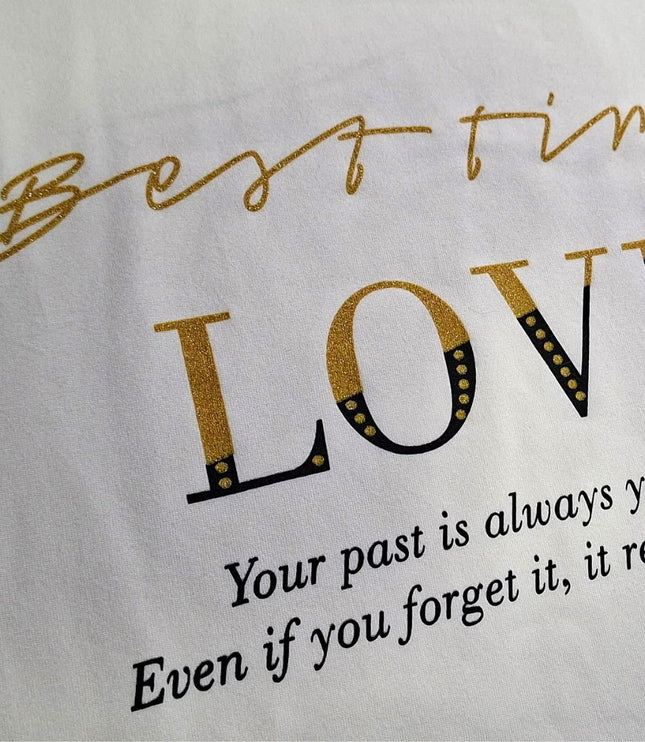 Best tim
LOV
Your past is always y
Even if you forget it, it re